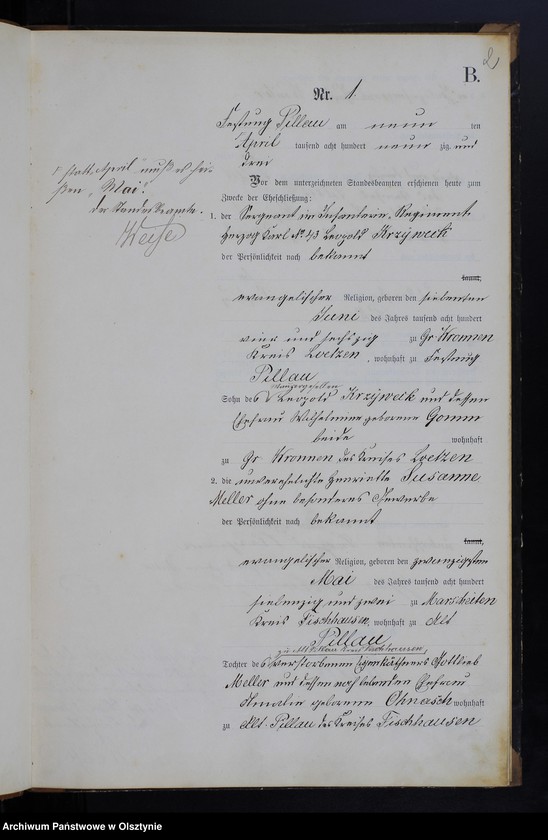 2
B.
Nr. 1
Festung Pillau am neun ten
April tausend acht hundert neun zig und
drei
Vor dem unterzeichneten Standesbeamten erschienen heute zum
Zwecke der Eheschließung:
1. der Sergeant im Infanterie-Regiment
Herzog Karl No 43 Leopold Krzÿweik
der Persönlichkeit nach bekannt
kannt,
evangelischer Religion, geboren den siebenten
Juni des Jahres tausend acht hundert
vier und sechszig zu Gr. Kronnen
Kreis Loetzen, wohnhaft zu Festung
Pillau
Sohn des Leopold Krzÿweik und dessen
Ehefrau Wilhelmine geborene Gomm
beide wohnhaft
zu Gr. Kronnen des Kreises Loetzen
2. die unverehelichte Henriette Susanne
Meller ohne besonderes Gewerbe
der Persönlichkeit nach bekannt
kannt,
evangelischer Religion, geboren den zwanzigsten
Mai des Jahres tausend acht hundert
siebenzig und zwei zu Marscheiten
Kreis Fischhausen, wohnhaft zu Alt
Pillau
zu Alt Pillau Kreis Fischhausen
Tochter des verstorbenen Eigenkäthners Gottlieb
Meller und dessen noch lebenden Ehefrau
Amalie geborenen Ohnasch wohnhaft
zu Alt-Pillau des Kreises Fischhausen
statt „April“ muß es hei-
ßen „Mai“.
Der Standesbeamte.
Archiwum Państwowe w Olsztynie